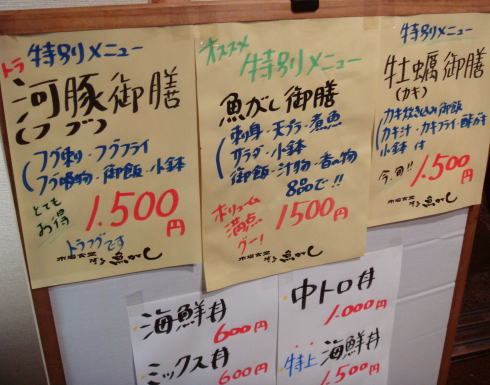 トラ
特別メニュー
河豚御膳
(フグ)
フグ刺・フグフライ
フグ鍋物・御飯・小鉢
とても
お得
1.500円
トラフグです
市場食堂
魚がし
オススメ
特別メニュー
魚がし御膳
刺身・天プラ・煮魚
サラダ・小鉢
御飯・汁物・香の物
8品で!!
ボリューム
満点
グー!
1500円
市場食堂
魚がし
特別メニュー
牡蠣御膳
(カキ)
カキ炊き込み御飯
カキ汁・カキフライ・酢がき
小鉢は
今回!!
1.500円
市場食堂
魚がし
海鮮丼
600円
ミックス丼
600円
中トロ丼
1.000円
特上海鮮丼
1.500円